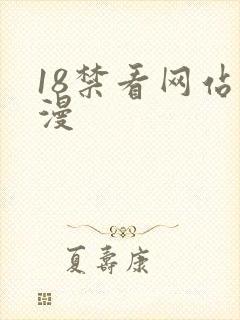 18禁看网佔
漫
夏壽康